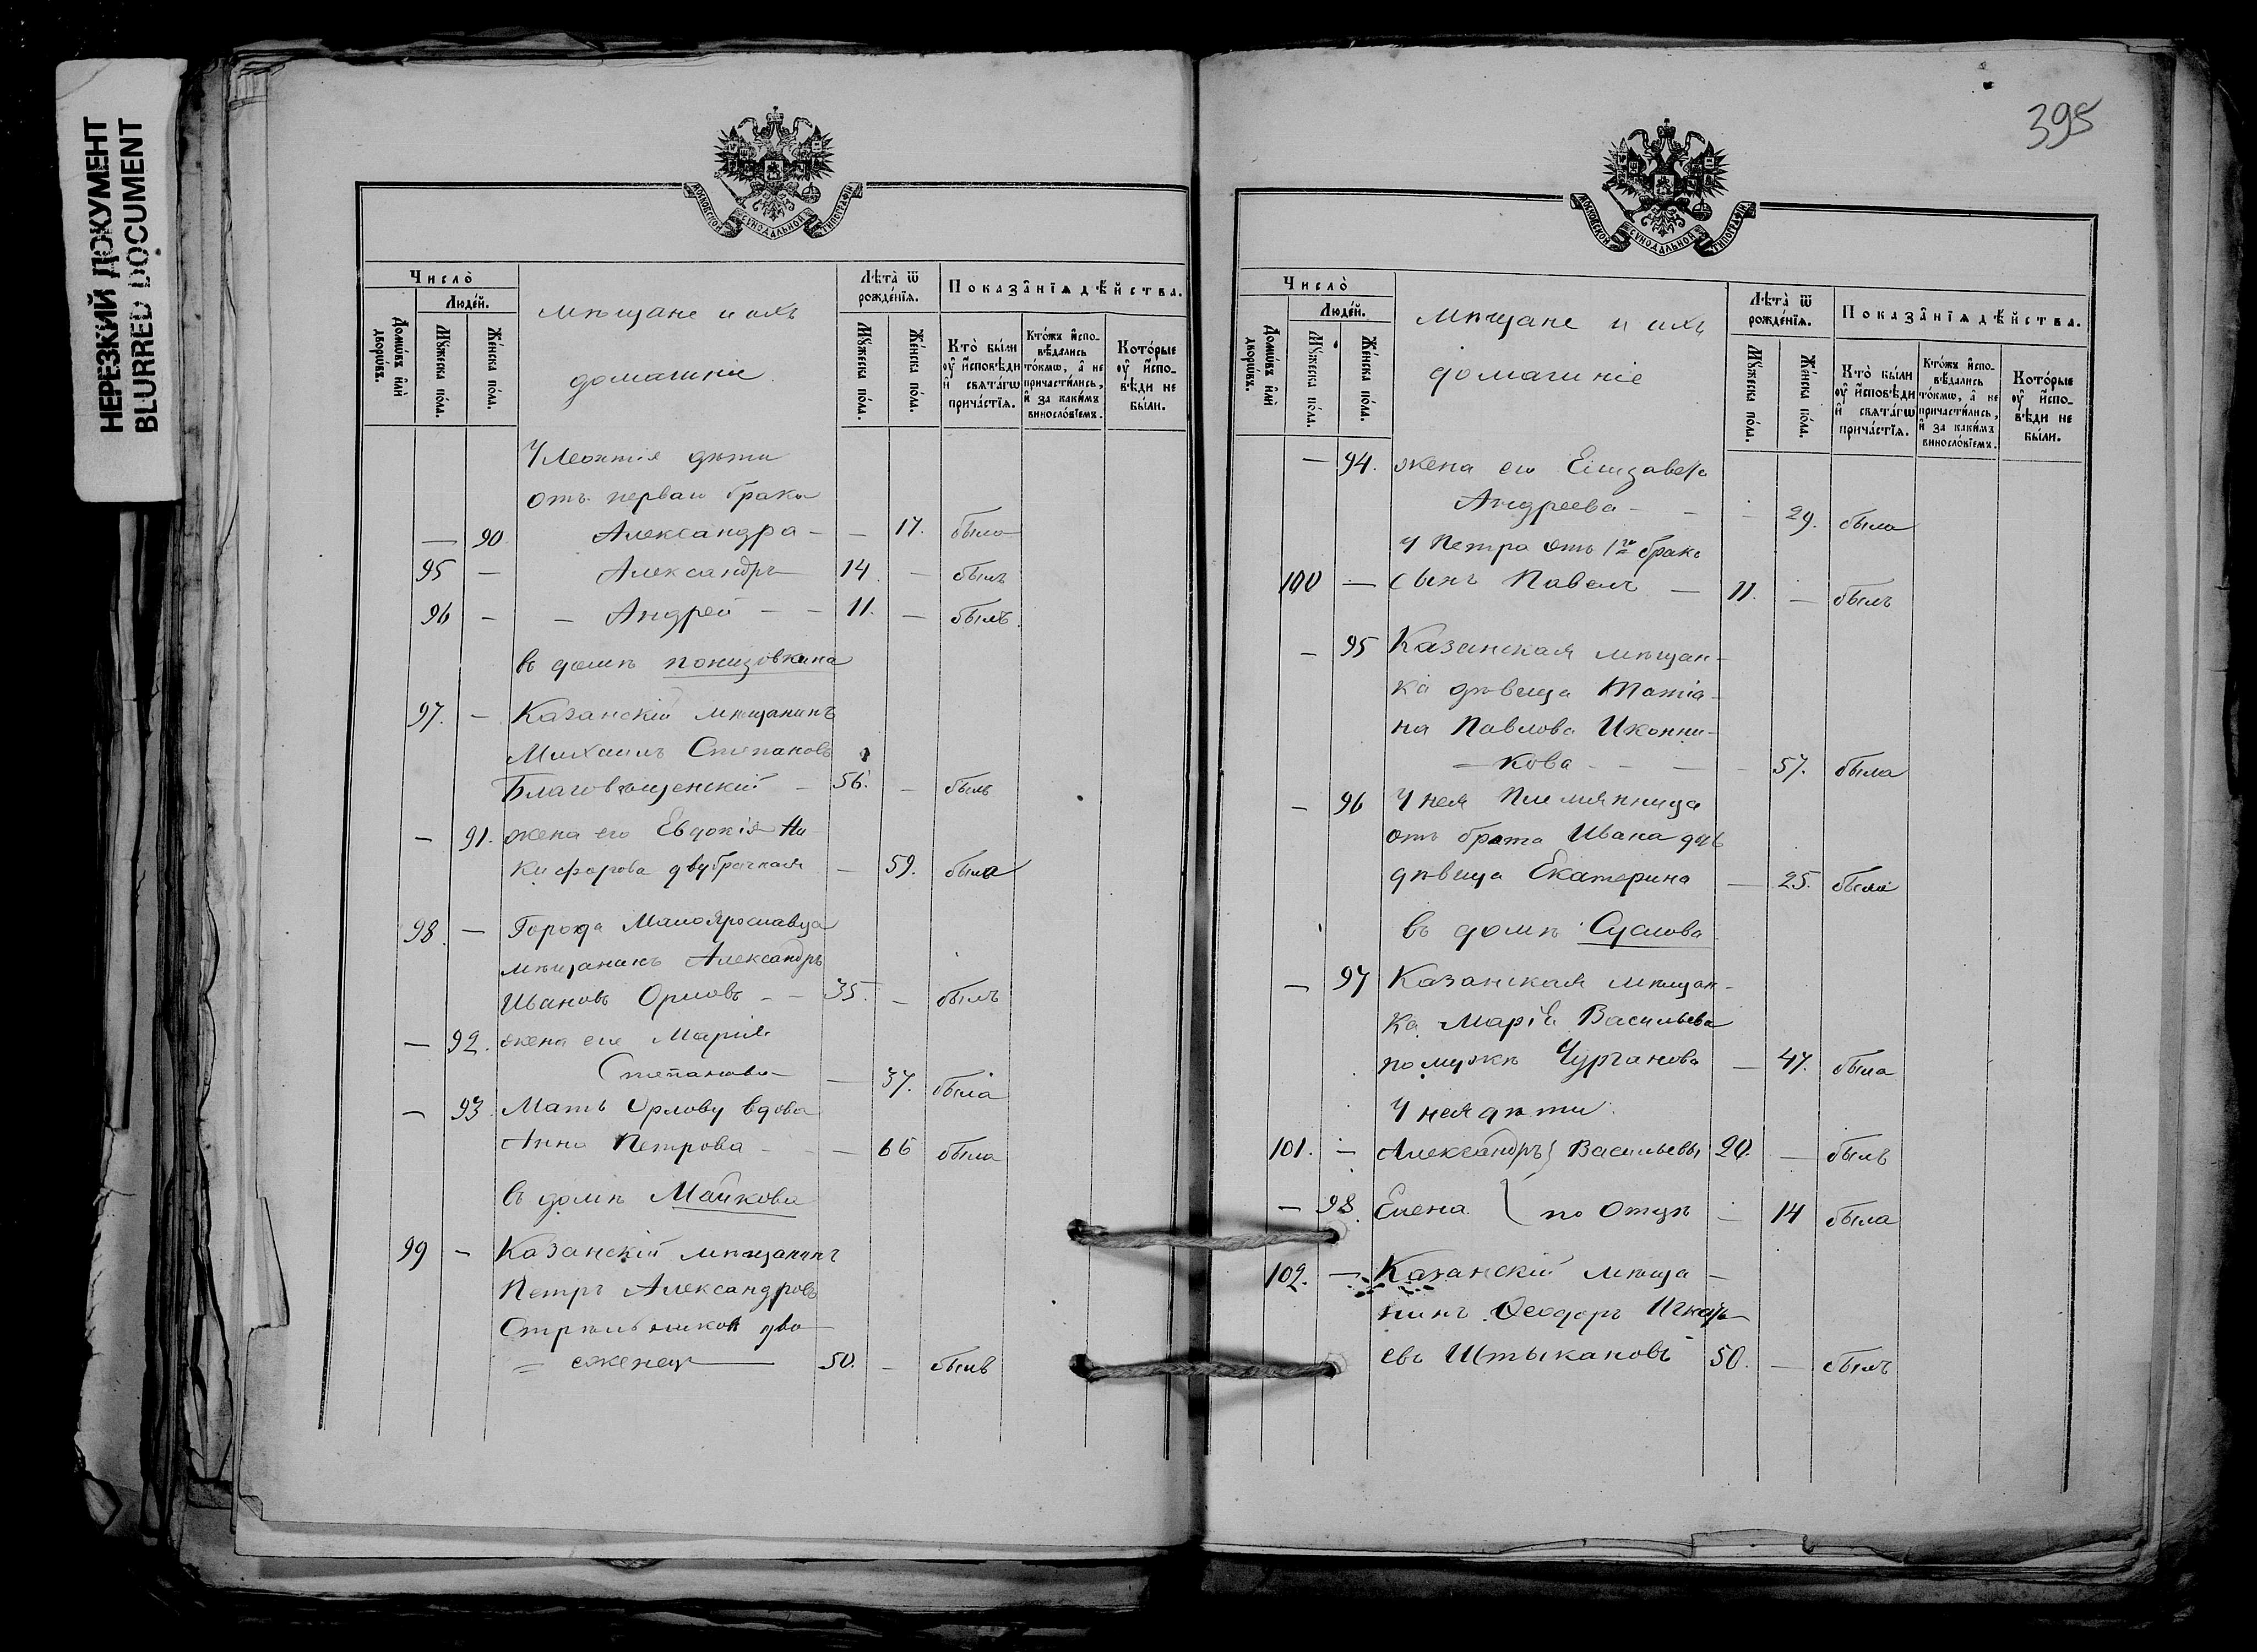 НЕРЕЗКИЙ ДОКУМЕНТ
BLURRED DOCUMENT
МОСКОВСКОЙ СУНОДАЛЬНОЙ ТИПОГРАФІИ
Число̀
Людéй.
Домѡ́въ и҆лѝ дворѡ́въ.
Мꙋ́жеска по́ла.
Же́нска по́ла.
мѣщане и ихъ
домашніе
Лѣта̀ ѿ рожде́нїѧ.
Мꙋ́жеска по́ла.
Же́нска по́ла.
Показа̑нїѧ дѣ́йства.
Кто̀ бы́ли ᲂу҆ и҆сповѣ́ди и҆ свѧта́гѡ прича́стїѧ.
Кто́жъ и҆сповѣ́дались то́кмѡ, а҆ не причасти́лись, и҆ за каки́мъ винослО́вїемъ.
Кото́рые ᲂу҆ и҆сповѣ́ди не бы́ли.
У Леонтія дѣти
отъ перваго брака
— 90 Александра — — 17. была
95 — Александръ 14. — былъ
96 — — Андрей — — 11. — былъ.
въ домѣ Понизовкина
97. — Казанскій мѣщанинъ
Михаилъ Степановъ
Благовѣщенскій — 56. — былъ
— 91. жена его Евдокія Ни
кифорова двубрачная — 59. была
98. — Города Малоярославца
мѣщанинъ Александръ
Ивановъ Орловъ — — 35. — былъ
— 92. жена его Марія
Степанова — — 37. была
— 93. Мать Орлову вдова
Анна Петрова — — 66 была
въ домѣ Майкова
99 — Казанскій мѣщанинъ
Петръ Александровъ
Стрѣльников дво
= еженец — 50. — былъ
395
МОСКОВСКОЙ СУНОДАЛЬНОЙ ТИПОГРАФІИ
Число̀
Людéй.
Домѡ́въ и҆лѝ дворѡ́въ.
Мꙋ́жеска по́ла.
Же́нска по́ла.
мѣщане и ихъ
домашніе
Лѣта̀ ѿ рожде́нїѧ.
Мꙋ́жеска по́ла.
Же́нска по́ла.
Показа̑нїѧ дѣ́йства.
Кто̀ бы́ли ᲂу҆ и҆сповѣ́ди и҆ свѧта́гѡ прича́стїѧ.
Кто́жъ и҆сповѣ́дались то́кмѡ, а҆ не причасти́лись, и҆ за каки́мъ винослО́вїемъ.
Кото́рые ᲂу҆ и҆сповѣ́ди не бы́ли.
— 94. жена его Елизавета
Андреева — — 29. была
У Петра отъ 1го брака
100 — сынъ Павелъ — 11. — былъ
— 95 Казанская мѣщан-
ка дѣвица Татіа-
на Павлова Иконни-
— кова — — — 57. была
— 96 У нея племянница
отъ брата Ивана
дѣвица Екатерина — 25. была
въ домѣ Суслова
— 97 Казанская мѣщан-
ка Марія Васильева
по мужѣ Чурганова — 47. была
У нея дѣти:
101. — Александръ } Васильевы 20. — былъ
— 98. Елена } по отцѣ — 14 была
102. — Казанскій мѣща-
нинъ Ѳеодоръ Игнать
евъ Штыкановъ 50. — былъ